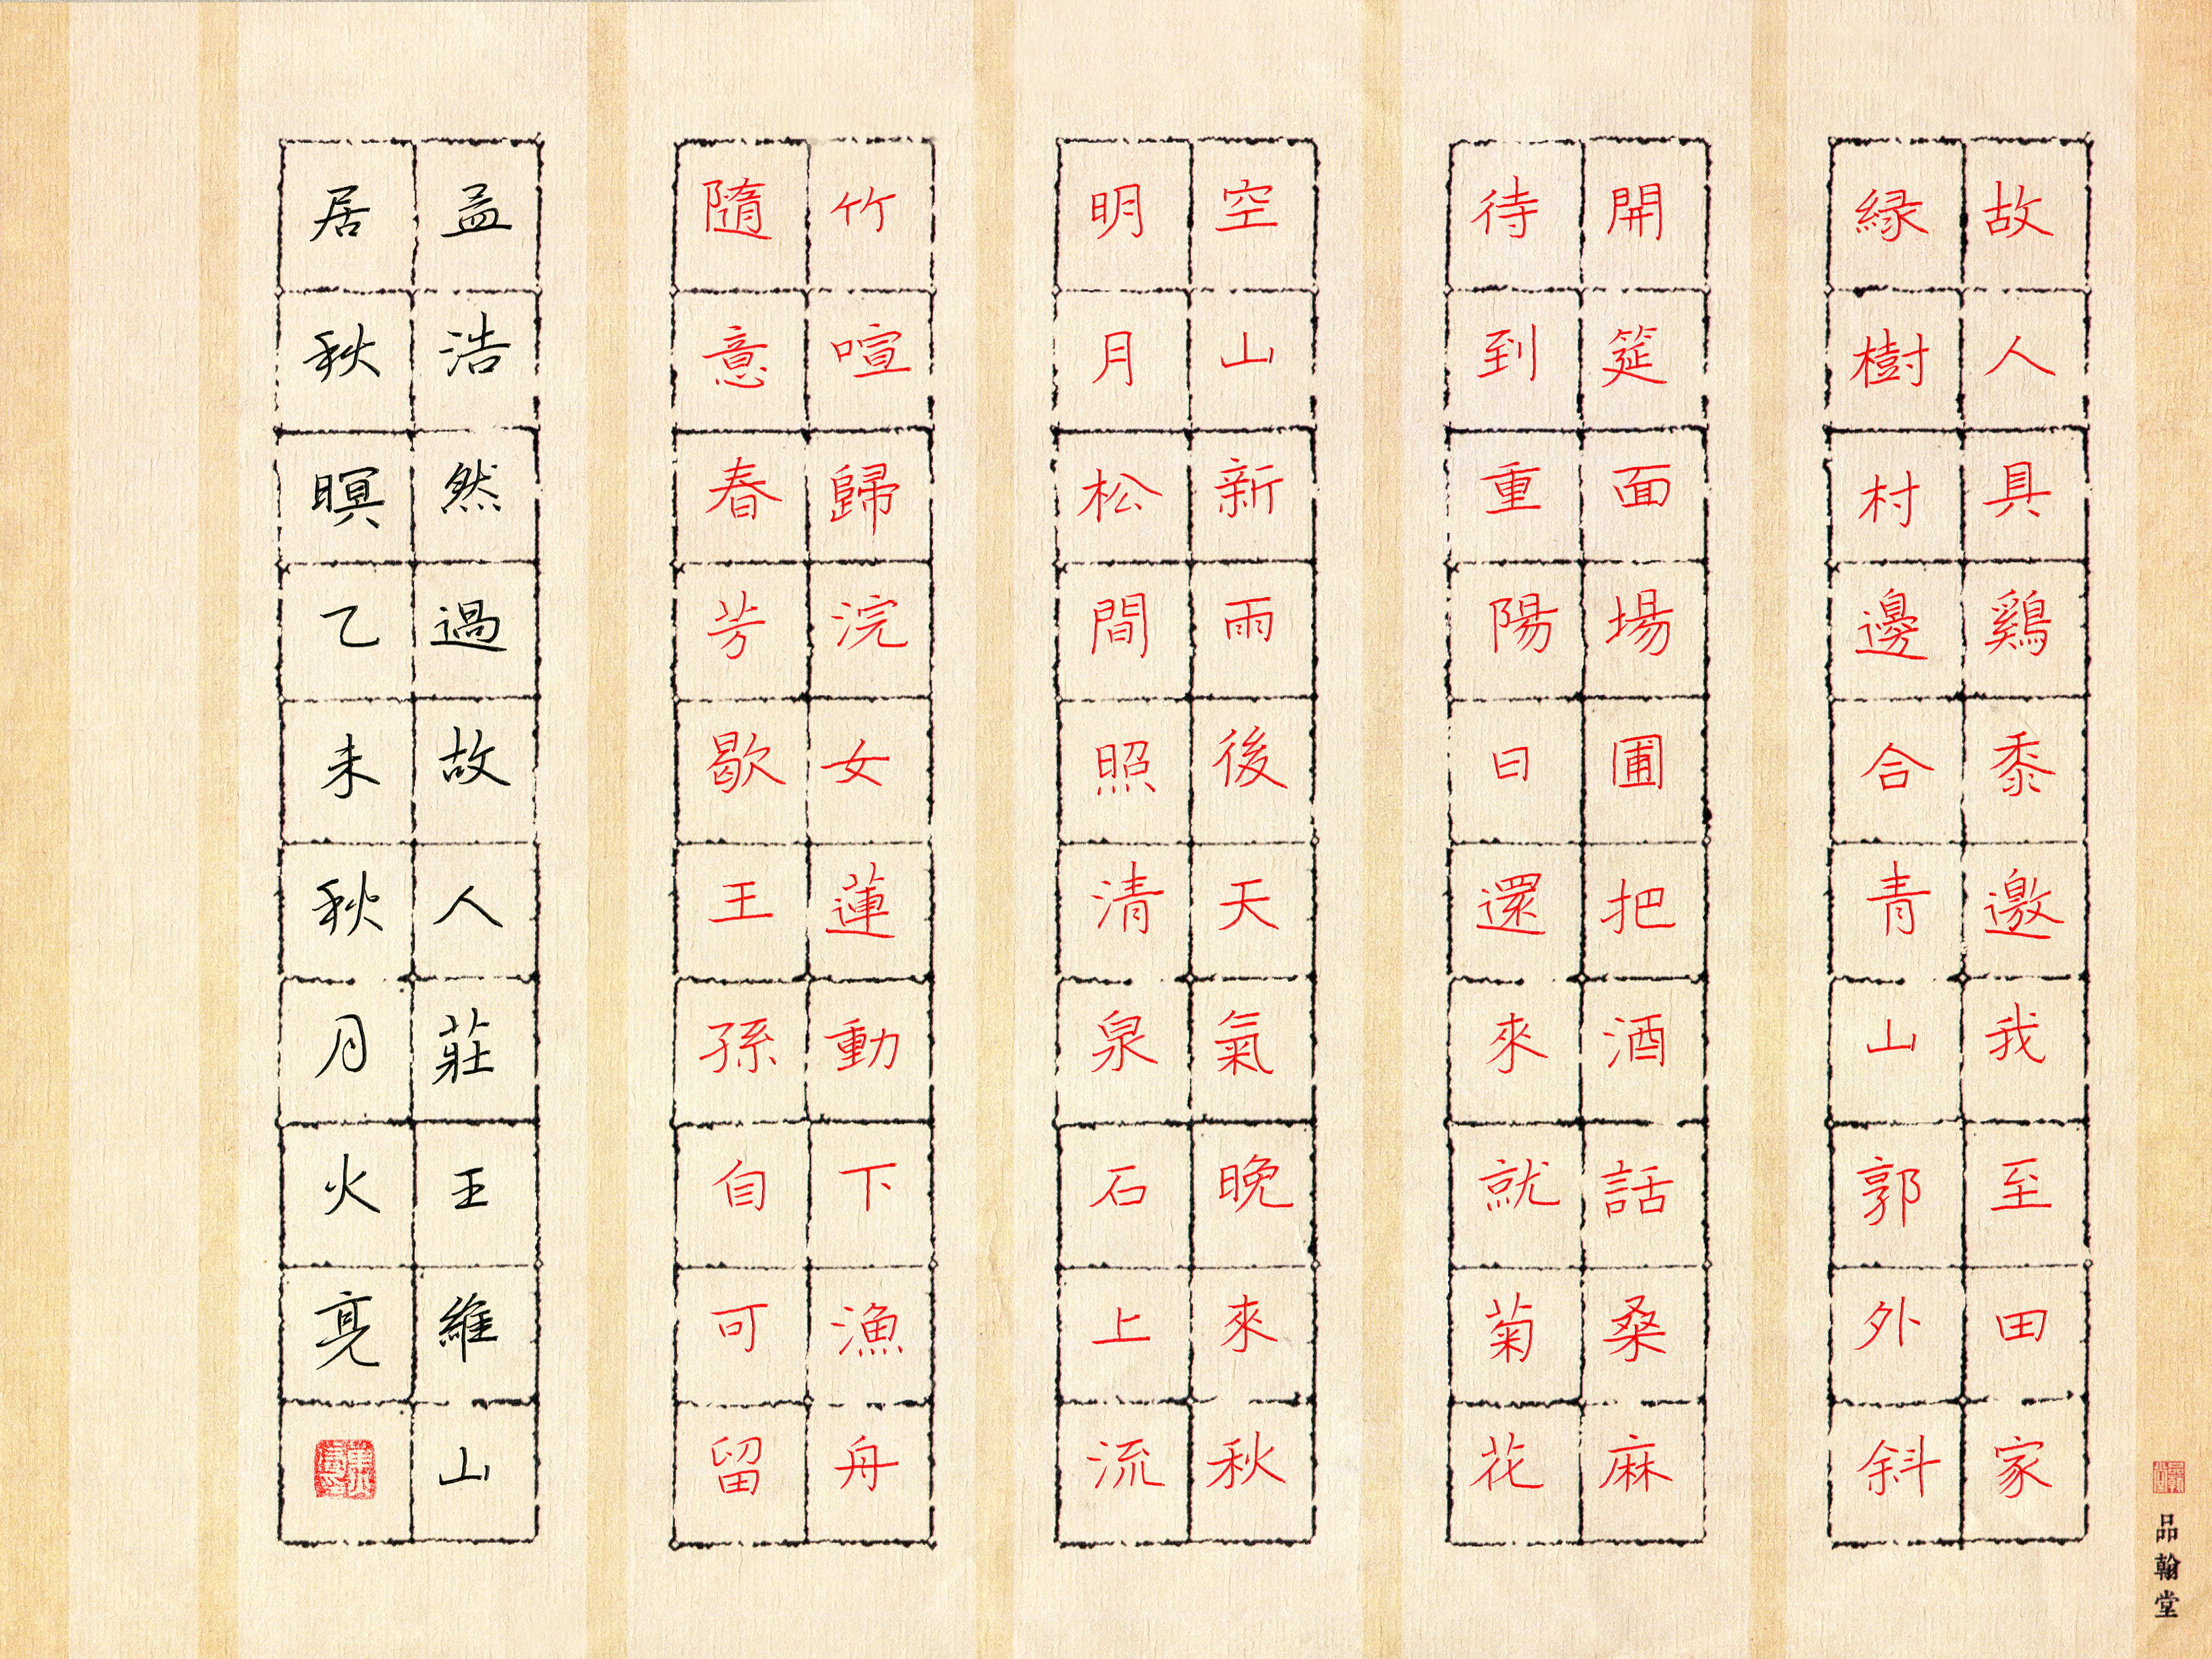 故人具鷄黍邀我至田家
緑樹村邊合青山郭外斜
開筵面場圃把酒話桑麻
待到重陽日還來就菊花
空山新雨後天氣晚來秋
明月松間照清泉石上流
竹喧歸浣女蓮動下漁舟
隨意春芳歇王孫自可留
孟浩然過故人莊王維山
居秋暝乙未秋月火亮
品翰堂